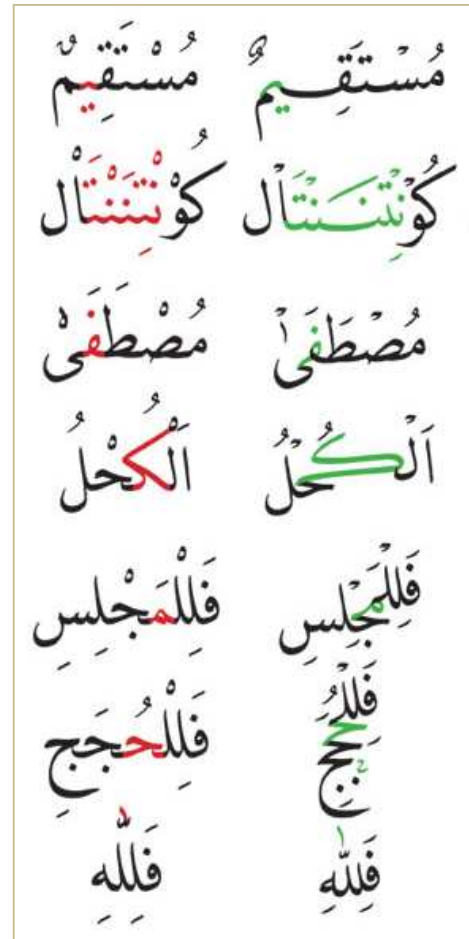 مُسْتَقِيمٌ مُسْتَقِيمٌ
كُوْنْتِنَنْتَاْل كُوْنْتِنَنْتَاْل
مُصْطَفَىٰ مُصْطَفَىٰ
اَلْكُحْلُ اَلْكُحْلُ
فَلِلْمَجْلِسِ فَلِلْمَجْلِسِ
فَلِلْحُجَجِ فَلِلْحُجَجِ
فَلِلّٰهِ فَلِلّٰهِ